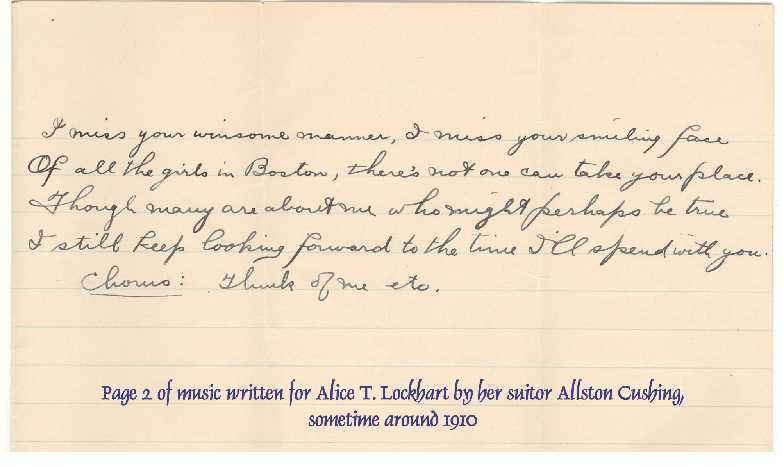 I miss your winsome manner, I miss your smiling face
Of all the girls in Boston, there's not one can take your place.
Though many are about me who might perhaps be true
I still keep looking forward to the time I'll spend with you.
Chorus: Think of me etc.
Page 2 of music written for Alice T. Lockhart by her suitor Allston Cushing,
sometime around 1910